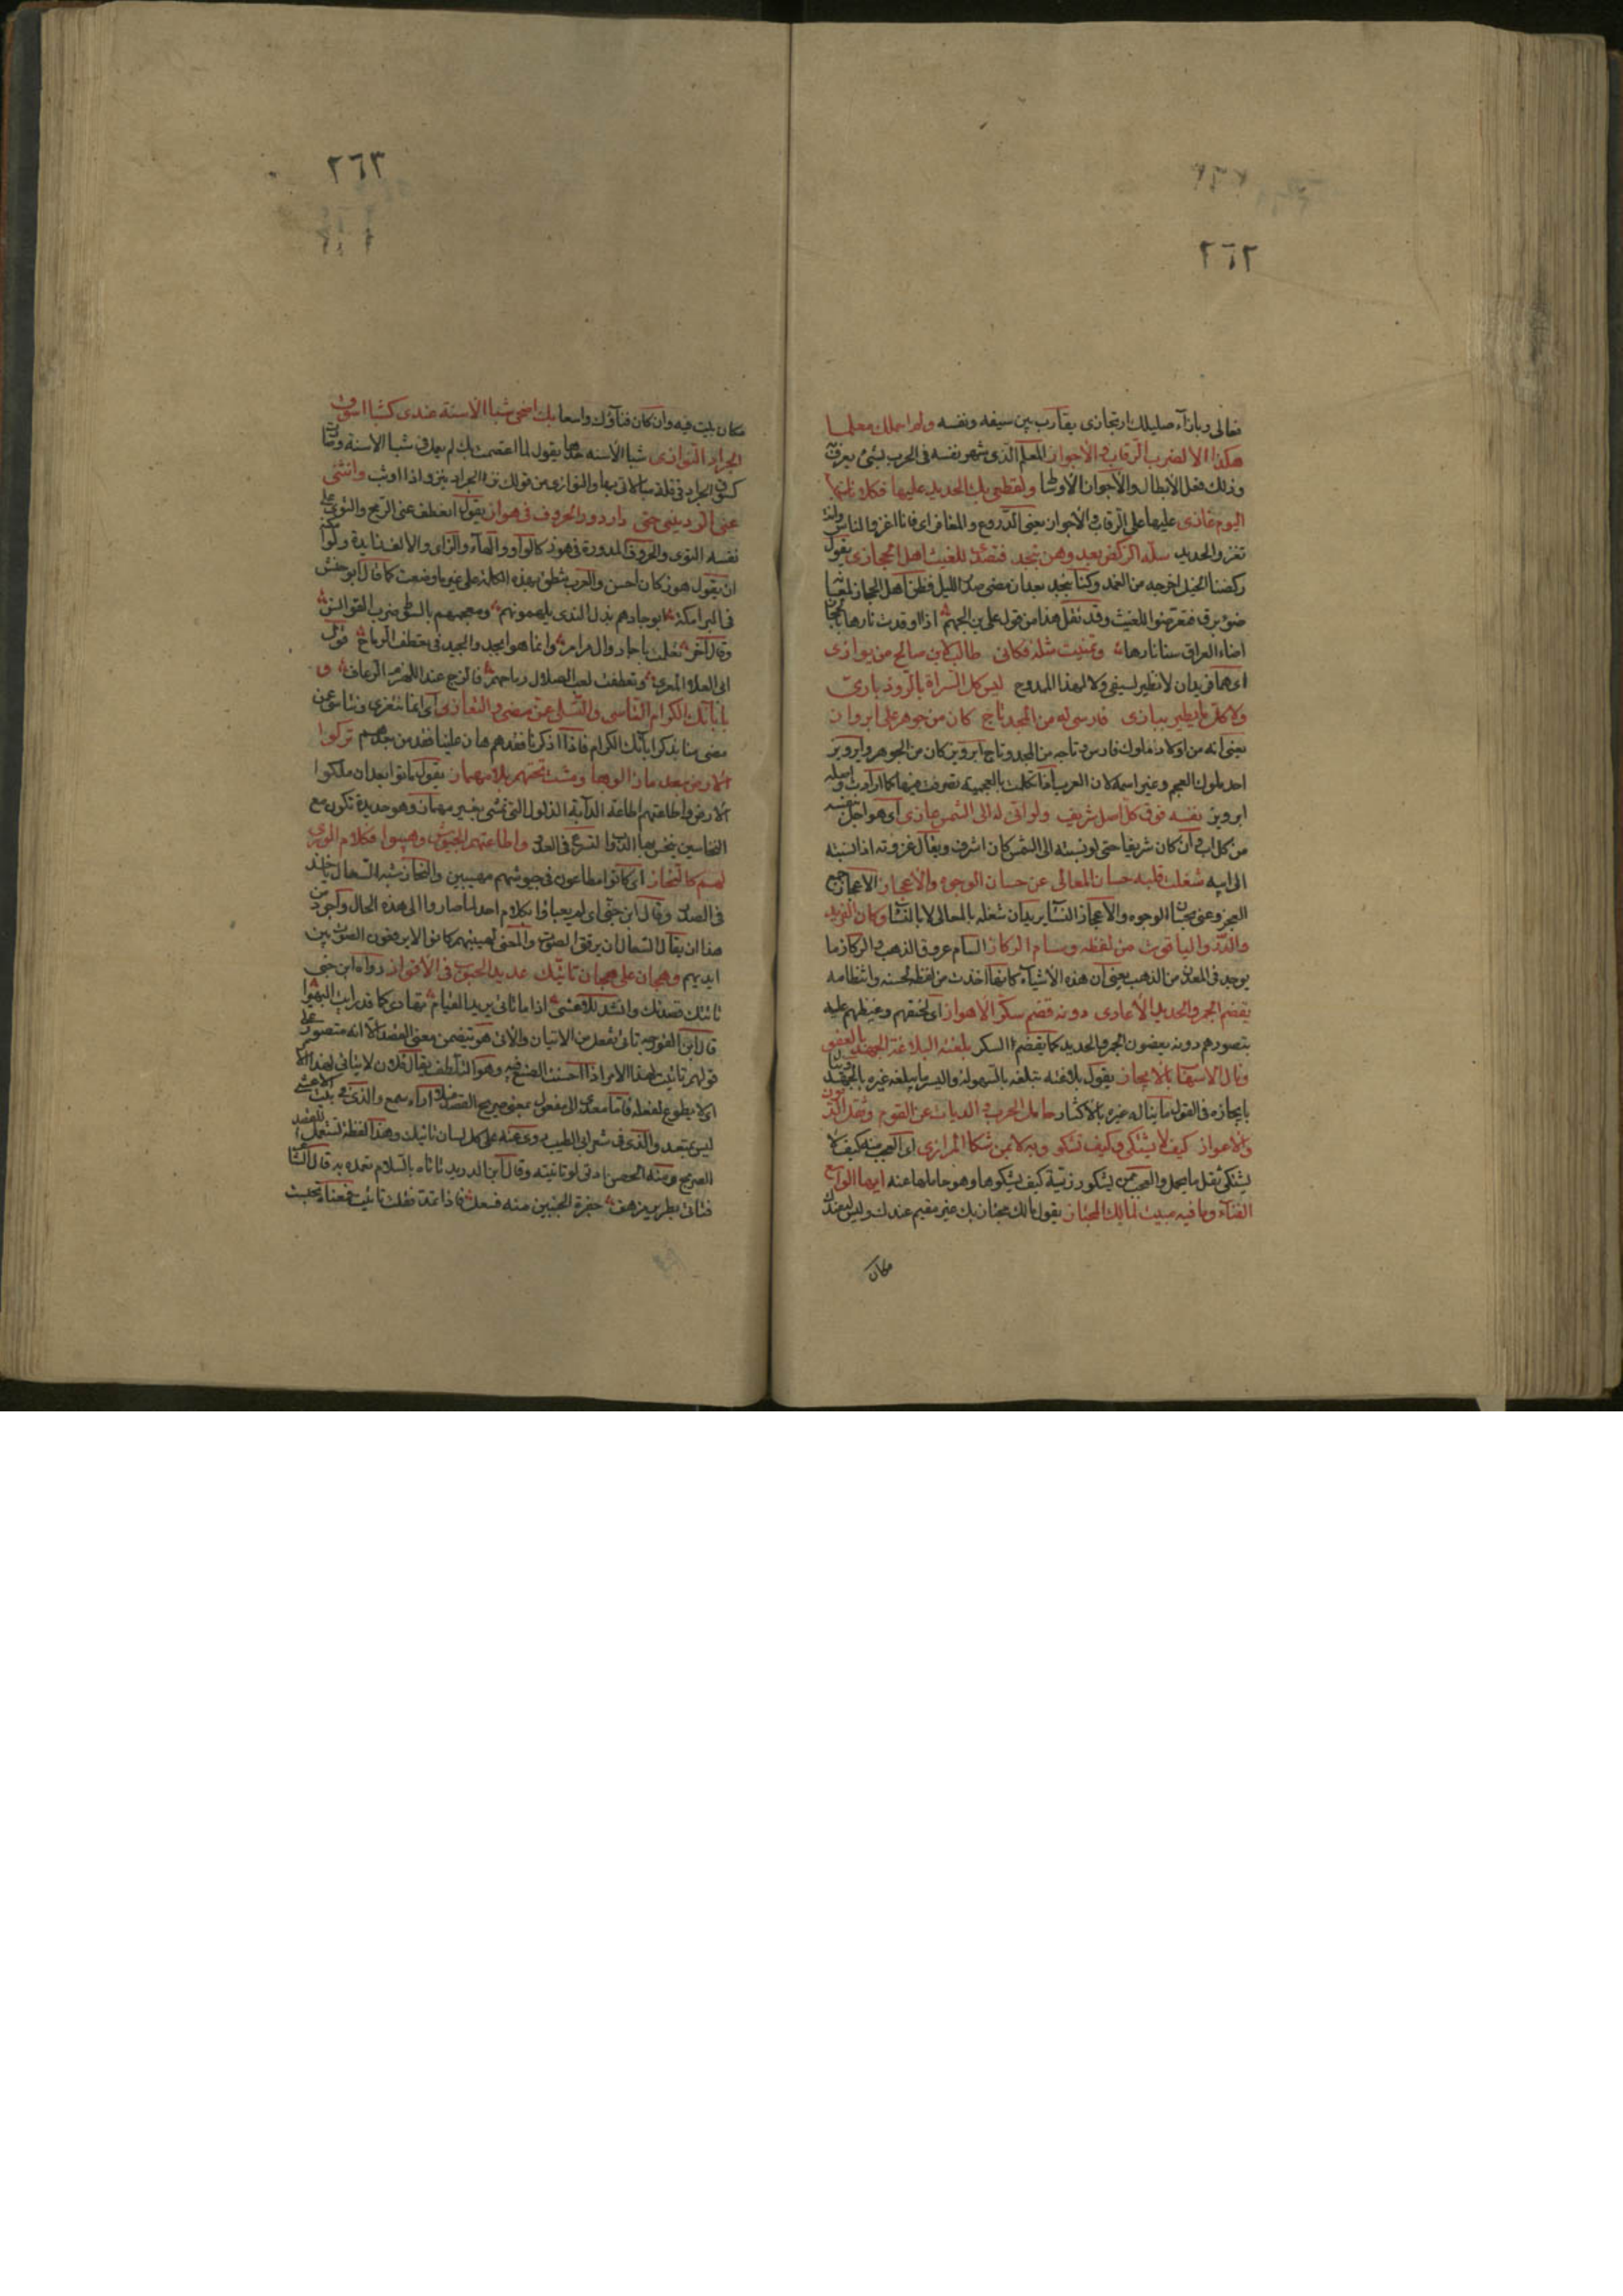 ٢٦٢
تعالى وبازاء صليلك ارتجازى يقارب بين سيفه ونفسه ولم احملك معلما
هكذا الا لضرب الرقاب والاجواز المعلم الذى شهر نفسه فى الحرب بشئ يعرف به
وذلك فعل الابطال والاجواز الاوساط ولقطعى بك الحديد عليها فكلانا لجنسه
اليوم غازى عليها على الرقاب والاجواز يعنى الدروع والمغافر اى فانا اغزو الناس وانت
تغزو الحديد سله الركض بعد وهن بنجد فتصدى للغيث اهل الحجاز يقول
ركضنا الخيل اخرجه من الغمد وكنا بنجد بعد ان مضى صدر الليل فظن اهل الحجاز لمعها
ضوء برق فتعرضوا للغيث وقد نقل هذا من قول على بن الجهم اذا اوقدت نارها بالحجاز
اضاء العراق سنا نارها وتمنيت مثله فكانى طالب لابن صالح من يوازى
اى هما فريدان لا نظير لسيفى ولا لهذا الممدوح ليس كل السراة بالروذبارى
ولا كل ما يطير ببازى فارسى له من المجد تاج كان من جوهر على ابرواز
يعنى انه من اولاد ملوك فارس وتاجه من المجد وتاج ابرويز كان من الجوهر وابرويز
احد ملوك العجم وغير اسمه لان العرب اذا تكلمت بالعجمية تصرفت فيها كما ارادت واصله
ابرويز نفسه فوق كل اصل شريف ولو انى له الى الشمس عازى اى هو اجل نفسه
من كل اب وان كان شريفا حتى لو نسبته الى الشمس كان اشرف ويقال عزوته اذا نسبته
الى ابيه شغلت قلبه حسان المعالى عن حسان الوجوه والاعجاز الاعجاز جمع
العجز وعنى بحسان الوجوه والاعجاز النسا يريد ان شغله بالمعالى لا بالنسا وكان الفريد
والدر والياقوت من لفظه وسام الركاز السام عروق الذهب والركاز ما
يوجد فى المعدن من الذهب يعنى ان هذه الاشياء كانها اخذت من لفظه لحسنه وانتظامه
يقضم الجمر والحديد الاعادى دونه قضم سكر الاهواز اى لحنقهم وغيظهم عليه
بتصورهم دونه يعضون الجمر والحديد كما يقضم السكر بلغته البلاغة الجهد بالعفو
ونال الاسهاب بالايجاز يقول بلاغته تبلغه بالسهولة واليسر ما يبلغه غيره بالجهد
بايجازه فى القول ما يناله غيره بالاكثار حامل الحرب والديات عن القوم وثقل الديون
والاعواز كيف لا يشتكى وكيف تشكو وبه لا بمن شكا المرازى اى العجب منه كيف لا
يشتكى ثقل ما يحمل والعجب ممن يشكو رزيته كيف يشكوها وهو حاملها عنه ايها الواسع
الفناء وما فيه مبيت لمالك المجتاز يقول مالك مجتاز بك غير مقيم عندك وليس له عندك
مكان
٢٦٣
مكان يبيت فيه وان كان فناؤك واسعا بك اضحى شبا الاسنة عندى كشبا اسوق
الجراد النوازى شبا الاسنة حدها يقول لما اعتصمت بك لم يعمل فى شبا الاسنة وصارت
كسوق الجراد فى قلة مبالاتى بها والنوازى من قولك نزا الجراد ينزو اذا وثب وانثنى
عنى الردينى حتى دار دور الحروف فى هواز يقول انعطف عنى الرمح والتوى على
نفسه التوى والحروف المدورة فى هوز كالواو والهاء والزاى والالف زايدة ولو امكنه
ان يقول هوز كان احسن والعرب تنطق بهذه الكلمة على غير ما وضعت كما قال ابو حنش
فى البرامكة ابو جادهم بذل الندى يلهمونه ومعجمهم بالسوط ضرب القوانس
وقال آخر تعلمت باجاد وال مرامر وانما هو ابجد والجيد فى تعطف الرماح قول
ابى العلاء المعرى وتعطفت لعب الصلال رماحهم فالزج عند اللهزم الرعاف و
بابائك الكرام التاسى والتسلى عمن مضى والتعازى اى انما نتعزى ونتاسى عن
مضى منا بذكر ابائك الكرام فاذا ذكرنا فقدهم هان علينا فقد من بعدهم تركوا
الارض بعد ما ذللوها ومشت تحتهم بلا مهماز يقول ماتوا بعد ان ملكوا
الارض واطاعتهم اطاعة الدابة الذلول التى تمشى بغير مهماز وهو حديدة تكون مع
النخاسين ينخس بها الدواب لتسرع فى العدو واطاعتهم الجيوش وهيبوا فكلام الورى
لهم كالنحاز اى كانوا مطاعين فى جيوشهم مهيبين والنحاز شبه السعال ياخذ
فى الصدر وقال ابن جنى اى لم يعباوا بكلام احد لما صاروا الى هذه الحال واجود من
هذا ان يقال السعال ان يرقق الصوت والمعنى لهيبتهم كانوا لا يرفعون الصوت بين
ايديهم وهجان على هجان تاتيك عديد الحبوب فى الاقواز رواه ابن جنى
تاتتك قصدتك وانشد للاعشى اذا ما تاتى يريد القيام تهادى كما قد رايت البهيرا
قال ابن فورجه تاتى تفعل من الاتيان والاتى هو يتضمن معنى القصد الا انه مقصور على
قولهم تاتيت لهذا الامر اذا احسنت الصنع فيه وهو التلطف يقال فلان لا يتاتى لهذا الامر
اى لا يطوع لفعله فاما معدى الى مفعول بمعنى صريح القصد فلا اراه سمع والذى فى بيت الاعشى
ليس بمتعد والذى فى شعر ابى الطيب روى عنه على كل لسان تاتيك وهذا لفظة تستعمل للقصد
الصريح ومنه الحصن ادنى لو تاتيته وقال ابن الدريد تاتاه بالسلام تعمده به قال الشاعر
فتاتى بطرير مرهف جفرة الجنبين منه فسعل فاذا عمدة قلت تاتيت فمعناه تحببت